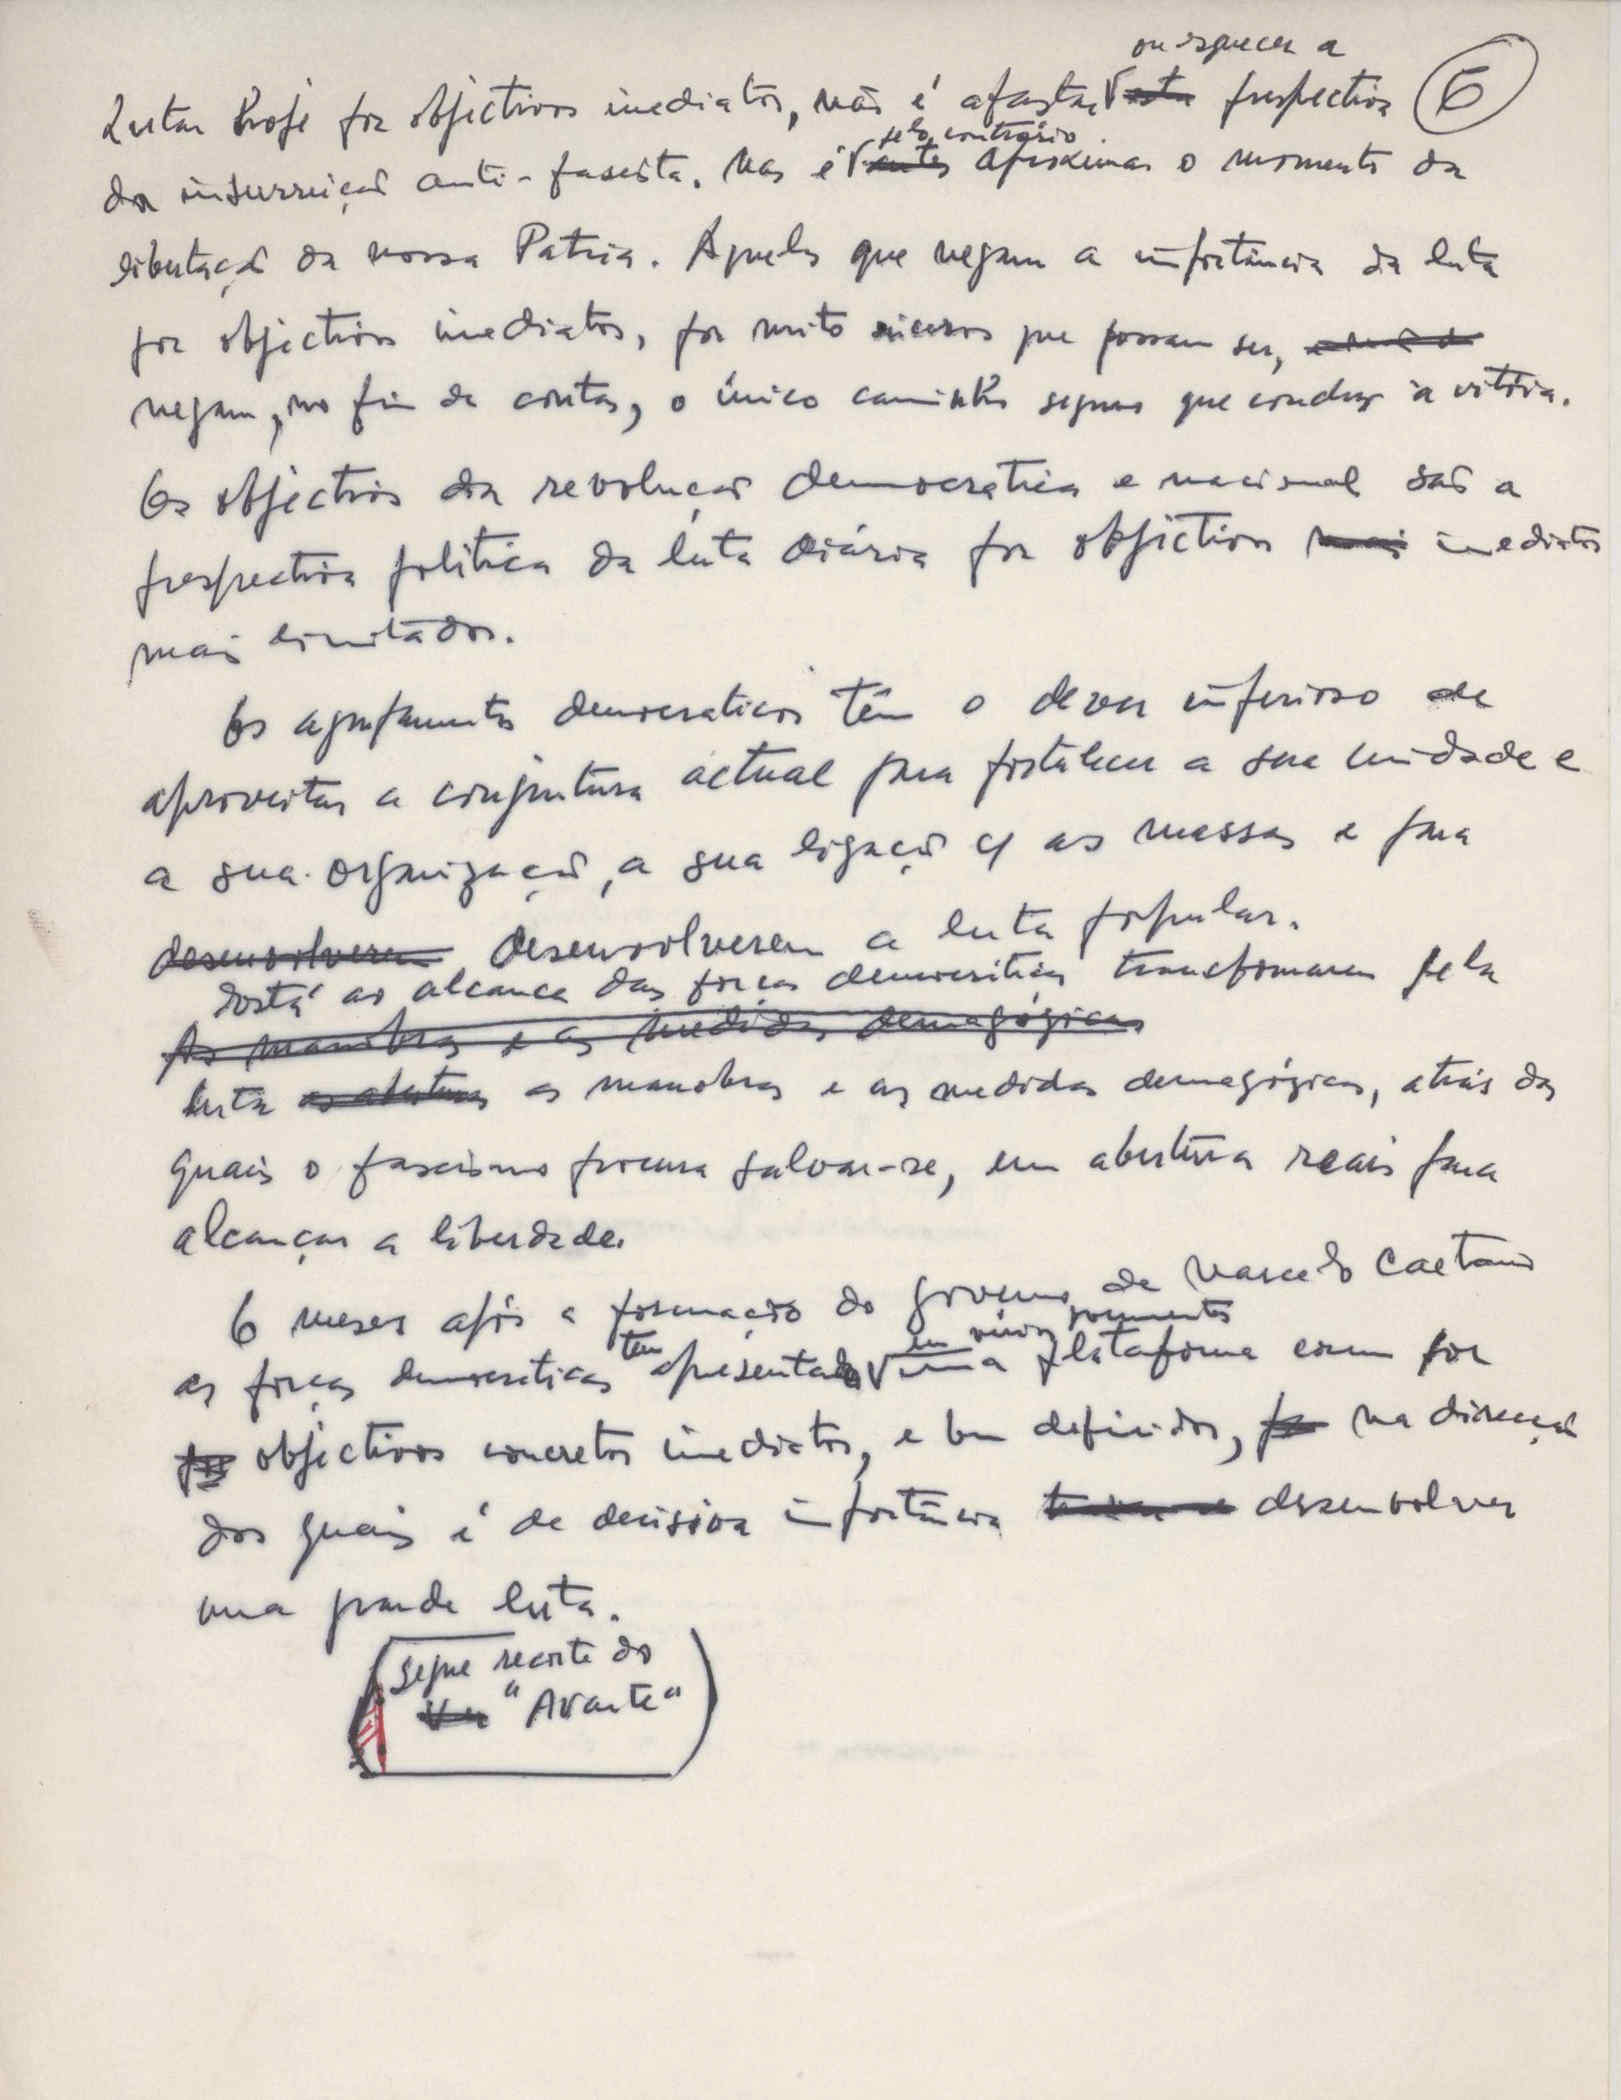 ou esquecer a
Lutar hoje por objectivos imediatos, não é afastar esta perspectiva 6
pelo contrário
da insurreição anti-fascista. Mas é antes aproximar o momento da
libertação da nossa Patria. Aqueles que negam a importância da luta
por objectivos imediatos, por muito sinceros que possam ser,
negam, no fim de contas, o único caminho seguro que conduz à vitória.
Os objectivos da revolução democratica e nacional são a
perspectiva politica da luta diária por objectivos mais imediatos
mais limitados.
Os agrupamentos democraticos têm o dever imperioso de
aproveitar a conjuntura actual para fortalecer a sua unidade e
a sua organização, a sua ligação c/ as massas e para
desenvolverem desenvolverem a luta popular.
Está ao alcance das forças democráticas transformarem pela
As manobras e as medidas demagógicas
luta as aberturas as manobras e as medidas demagógicas, atrás das
quais o fascismo procura salvar-se, em abertura reais para
alcançar a liberdade.
6 meses após a formação do governo de Marcelo Caetano
em vários documentos
as forças democraticas têm apresentado uma plataforma comum por
por objectivos concretos imediatos, e bem definidos, na direcção
dos quais é de decisiva importância desenvolver
uma grande luta.
Segue recorte do
Ver "Avante"